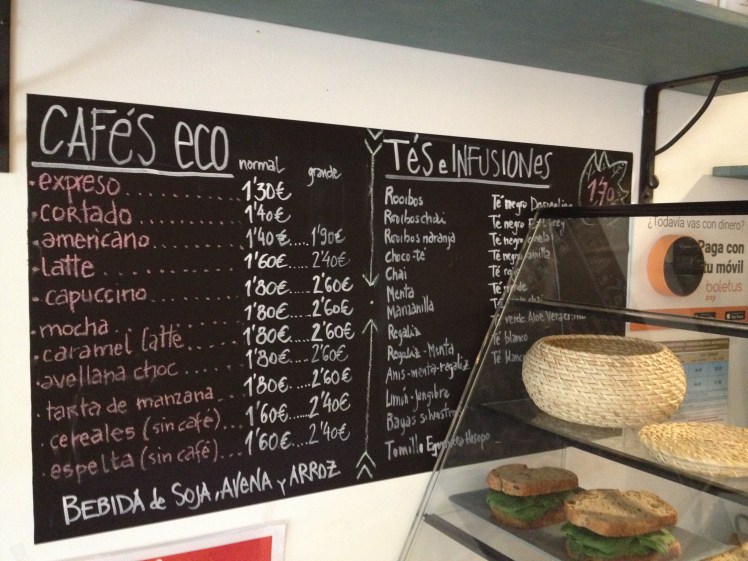 CAFÉS ECO
normal grande
·expreso........... 1'30€
·cortado........... 1'40€
·americano.......... 1'40€....1'90€
·Latte............. 1'60€.....2'40€
·capuccino......... 1'80€.....2'60€
·mocha............. 1'80€.....2'60€
·caramel latte..... 1'80€.....2'60€
·avellana choc..... 1'80€.....2'60€
·tarta de manzana.. 1'80€....2'60€
·cereales (sin café).. 1'60€......2'40€
·espelta (sin café)... 1'60€....2'40€
BEBIDA de SOJA, AVENA y ARROZ
TÉS e INFUSIONES
1'70
Rooibos
Rooibos chai
Rooibos naranja
Choco-té
Chai
Menta
Manzanilla
Regaliz
Regaliz-Menta
Anis-menta-regaliz
Limon-jengibre
Bayas
Tomillo
Hisopo
Té negro Darjeeling
Té negro Earl Grey
Té negro
Té negro
Té
Té
Té
verde Aloe Vera
Té blanco
Té blanc
¿Todavía vas con dinero?
Paga con
tu móvil
boletus